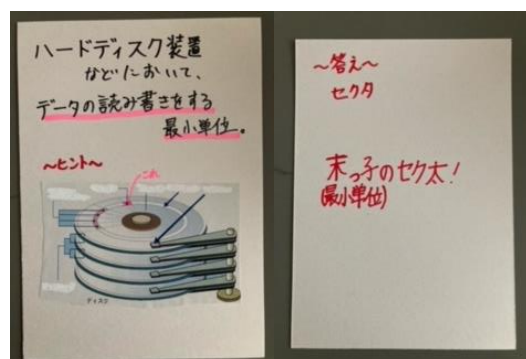 ハードディスク装置
などにおいて、
データの読み書きをする
最小単位。
〜ヒント〜
これ
ディスク
〜答え〜
セクタ
末っ子のセク太!
(最小単位)